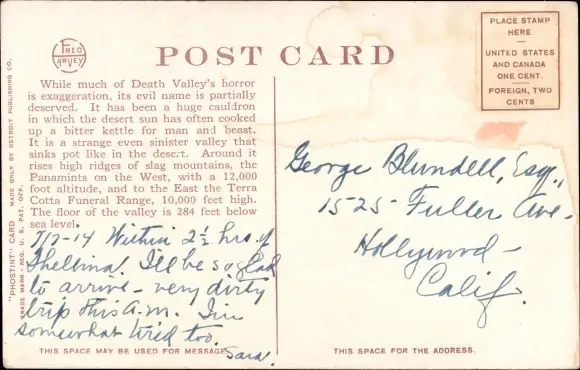 FRED HARVEY
POST CARD
PLACE STAMP
HERE
UNITED STATES
AND CANADA
ONE CENT.
FOREIGN, TWO
CENTS
While much of Death Valley's horror
is exaggeration, its evil name is partially
deserved. It has been a huge cauldron
in which the desert sun has often cooked
up a bitter kettle for man and beast.
It is a strange even sinister valley that
sinks pot like in the desert. Around it
rises high ridges of slag mountains, the
Panamints on the West, with a 12,000
foot altitude, and to the East the Terra
Cotta Funeral Range, 10,000 feet high.
The floor of the valley is 284 feet below
sea level.
"PHOSTINT" CARD MADE ONLY BY DETROIT PUBLISHING CO.
TRADE MARK - REG. U. S. PAT. OFF.
7/7-14 Within 2½ hrs. of
Shelbina. I'll be so glad
to arrive - very dirty
trip this a.m. I'm
somewhat tired too.
Sara.
George Blundell, Esq.,
1525- Fuller Ave-
Hollywood-
Calif.
THIS SPACE MAY BE USED FOR MESSAGE
THIS SPACE FOR THE ADDRESS.